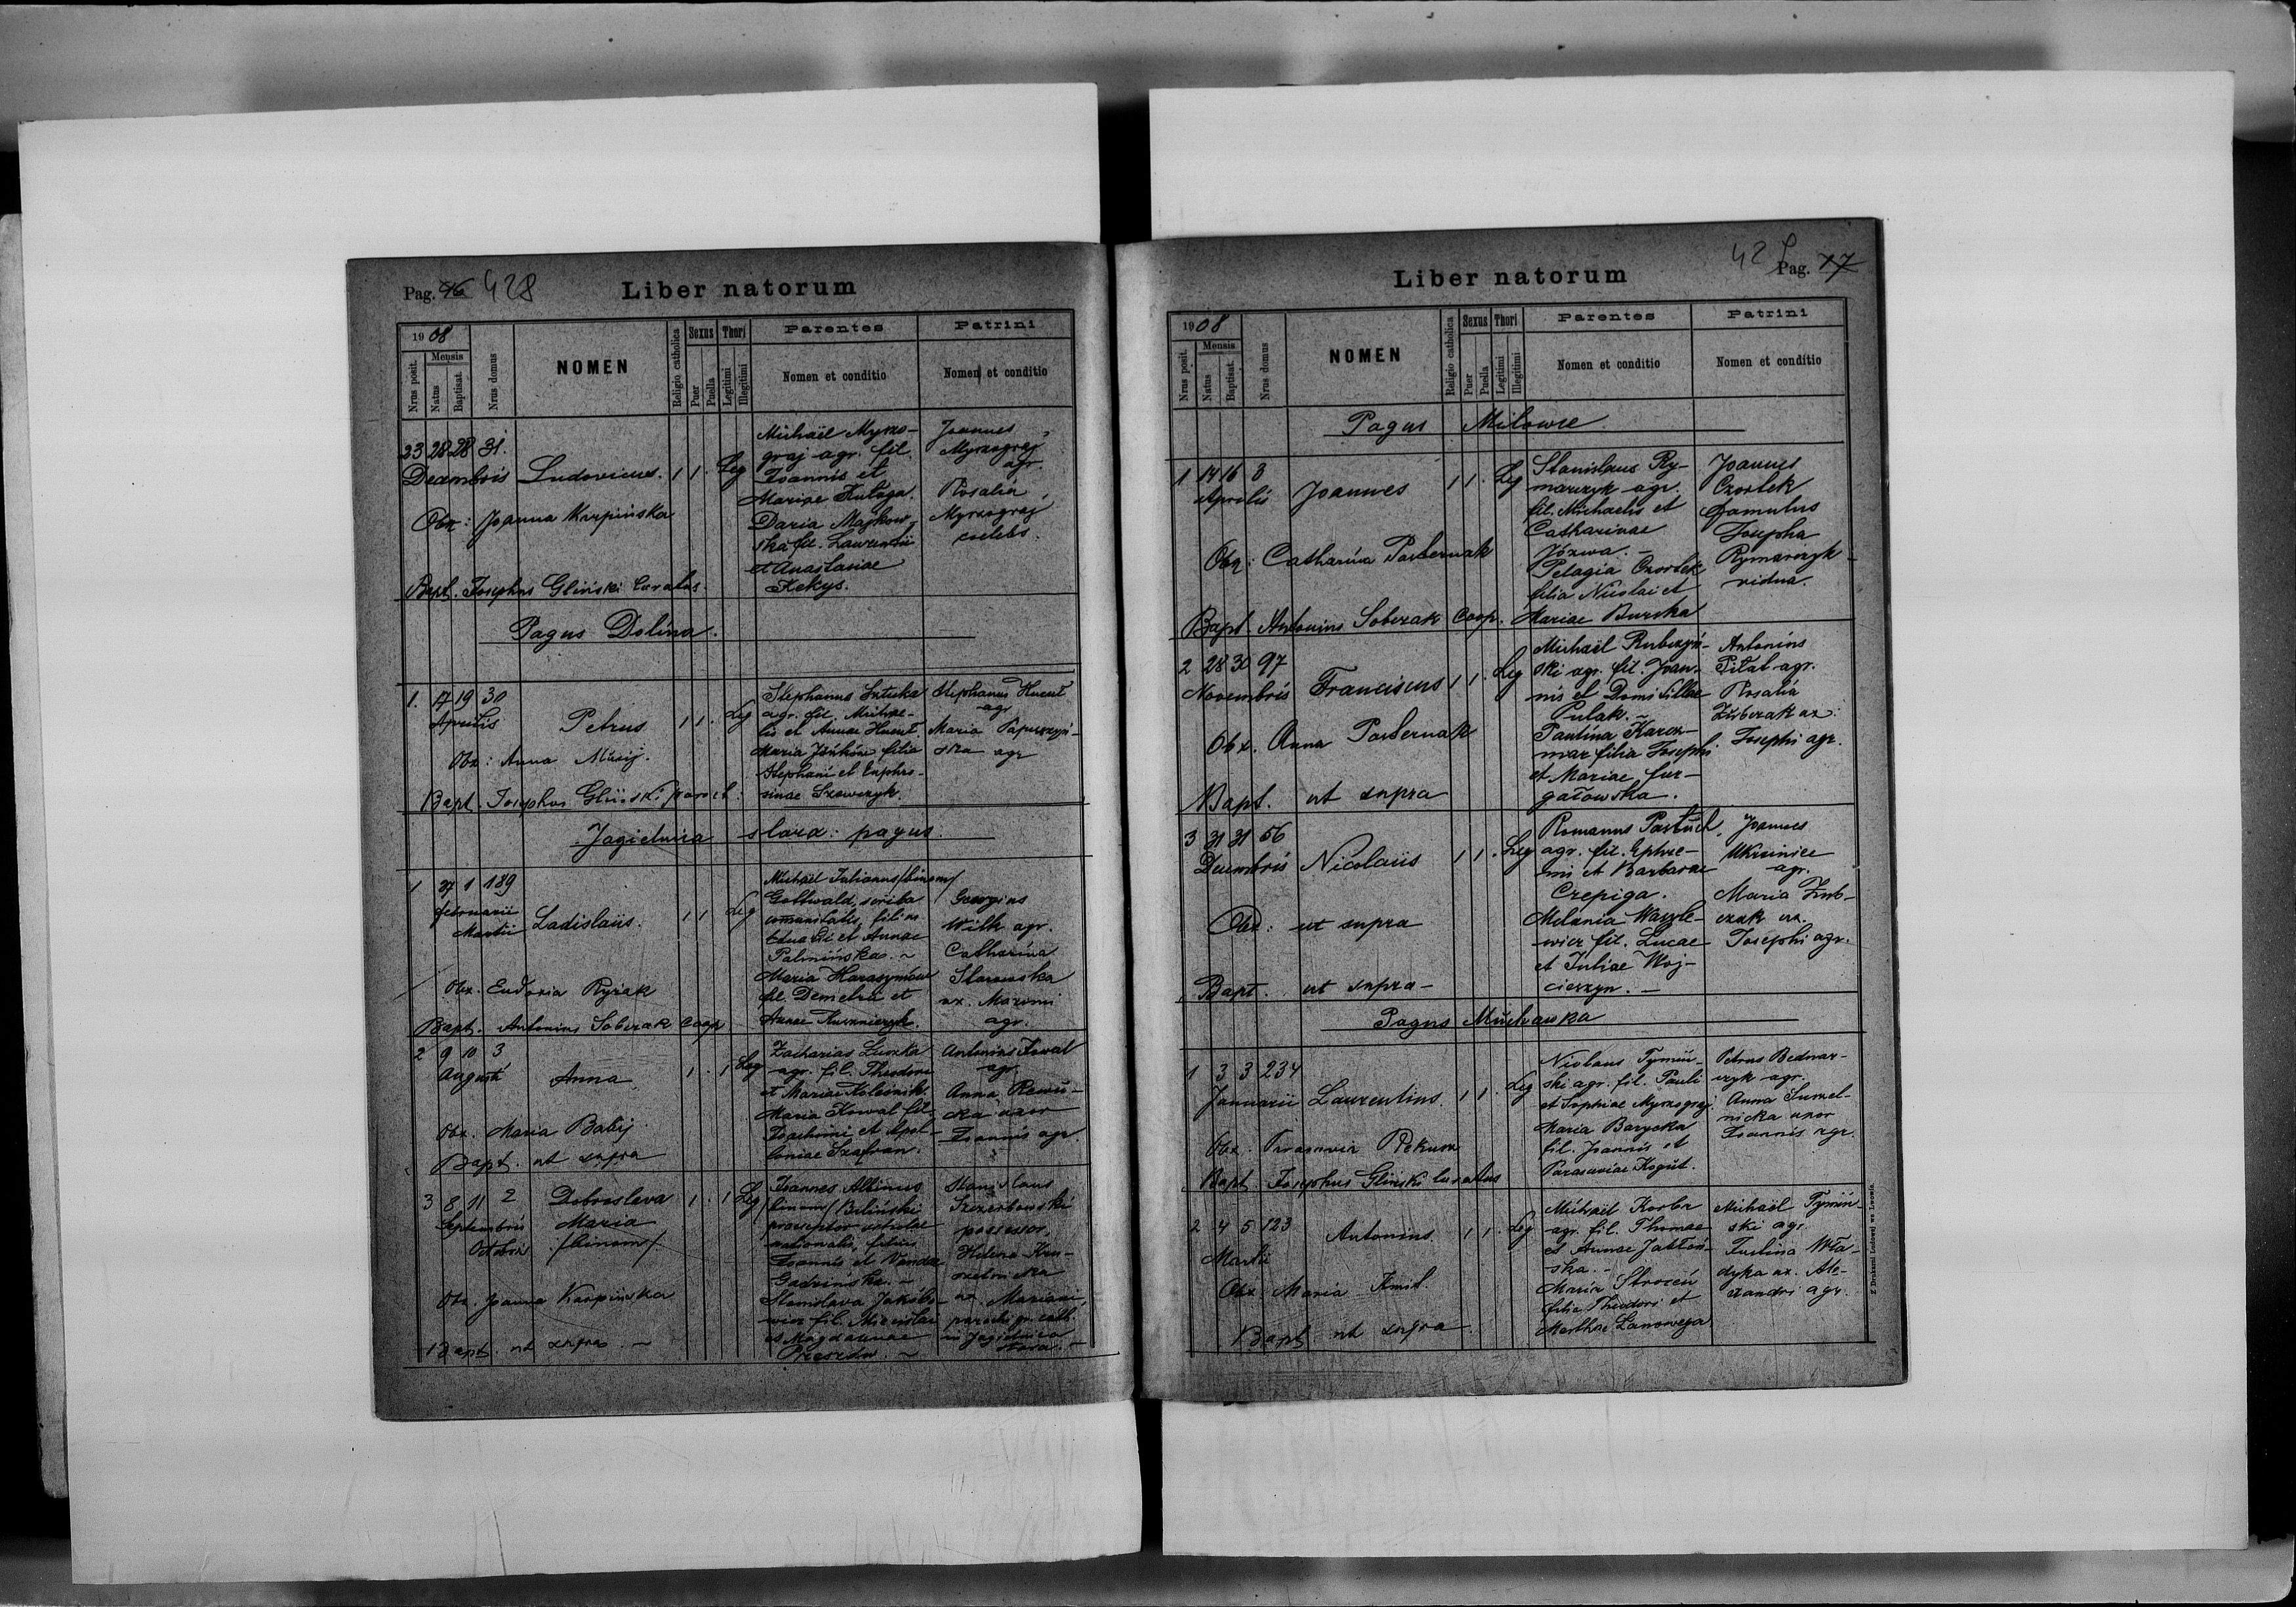 Pag. 428
Liber natorum
1908
Nrus posit.
Mensis
Natus
Baptisat.
Nrus domus
NOMEN
Religio catholica
Sexus
Puer
Puella
Thori
Legitimi
Illegitimi
Parentes
Nomen et conditio
Patrini
Nomen et conditio
23 28 28 31.
Decembris
Ludovicus. 1 1. Leg
Obx: Joanna Karpińska
Bapt. Josephus Gliński Curatus.
Michaël Myrzo-
graj agr. fil.
Joannis et
Mariae
Daria Majkow-
ska fil. Laurentii
et Anastasiae
Kekys.
Joannes
Myrzograj
agr.
Rosalia
Myrzograj
coelebs.
Pagus Dolina.
1. 17 19 30
Aprilis
Petrus 1 1. Leg
Obx: Anna
Bapt. Josephus Gliński paroch:
Stephanus
agr. fil. Michae-
lis et Annae Hucuł.
Maria filia
Stephani et Euphro-
sinae Szewczyk.
Stephanus Hucuł
agr.
Maria Papuszyń-
ska agr
Jagielnica stara: pagus.
1 27 1 189
februarii
Martii
Ladislaüs. 1 1 Leg
Obx. Eudoxia Ryżak
Bapt. Antonius Soberak Coop
Michaël Julianus /binom/
Gottwald, scriba
comunitatis, filius
Eduardi et Annae
Palinińska. ~
Maria Harasymów
fil. Demetrii et
Annae Kusznieryk.
Georgius
Wilk agr.
Catharina
Starowska
ux. Maximi
agr.
2 9 10 3
Augusti
Anna 1. 1 Leg
Obx. Maria Babij
Bapt. ut supra
Zacharias Luszka
agr. fil. Theodori
et Mariae Kolesnik.
Maria Kowal fil.
Joachimi et Apol-
loniae Szafran.
Antonius Kowal
agr.
Anna
uxor
Joannis agr.
3 8 11 2
Septembris
Octobris
Dobroslava
Maria
/binom/.
1. 1 Leg
Obx. Joanna Karpińska
Bapt. ut supra. ~
Joannes Albinus
/binom/ Biliński
praeceptor scholae
nationalis, filius
Joannis et Vandae
Stanislava Jakóbo-
wicz fil. Miecislai
et Magdalenae
Stanislaus
Szczerbowski
possessor,
Helena Kru-
szelnicka
ux. Mariani,
parochi gr. cath
in Jagielnica
stara. -
429 Pag.
Liber natorum
1908
Nrus posit.
Mensis
Natus
Baptisat.
Nrus domus
NOMEN
Religio catholica
Sexus
Puer
Puella
Thori
Legitimi
Illegitimi
Parentes
Nomen et conditio
Patrini
Nomen et conditio
Pagus Milowce
1 14 16 8
Aprilis
Joannes 1 1. Leg
Obx: Catharina Pasternak
Bapt. Antonius Soberak Coop.
Stanislaus Ry-
marczyk agr.
fil. Michaelis et
Catharinae
Józwa. -
Pelagia Czortek
filia Nicolai et
Mariae Burska
Joannes
Czortek
famulus
Josepha
Rymarczyk
vidua.
2 28 30 97
Novembris
Franciscus 1 1. Leg
Obx. Anna Pasternak
Bapt. ut supra
Michaël Rubczyń-
ski agr. fil. Joan-
nis et Domitillae
Pulak. -
Paulina Karcz-
mar filia Josephi
et Mariae Fur-
gałowska.
Antonius
Pitał agr.
Rosalia
Zubczak ux:
Josephi agr.
3 31 31 56
Decembris
Nicolaüs 1 1. Leg
Obx: ut supra
Bapt. ut supra -
Romanus Pastuch
agr. fil. Ephre-
mi et Barbarae
Czepiga.
Melania Wasyle-
wicz fil. Lucae
et Juliae Woj-
cieszyn. -
Joannes
Ukrainiec
agr.
Maria Zub-
czak ux.
Josephi agr.
Pagus Muchawka
1 3 3 234
Januarii
Laurentius 1 1. Leg
Obx. Parascevia
Bapt Josephus Gliński Curatus
Nicolaus Tymiń-
ski agr. fil. Pauli
et Sophiae Myrzograj.
Maria Barycka
fil. Joannis et
Parasceviae Kogut.
Petrus Bednar-
czyk agr.
Anna Sumel-
nicka uxor
Joannis agr.
2 4 5 123
Martii
Antonius 1 1. Leg
Obx. Maria Kmit.
Bapt ut supra.
Michaël Korba
agr. fil. Thomae
et Annae Jabłoń-
ska. -
Maria Stroceń
filia Theodori et
Marthae Lanowega
Michaël Tymiń-
ski agr.
Justina Wła-
dyka ux. Ale-
xandri agr.
Z Drukarni Ludowej we Lwowie.